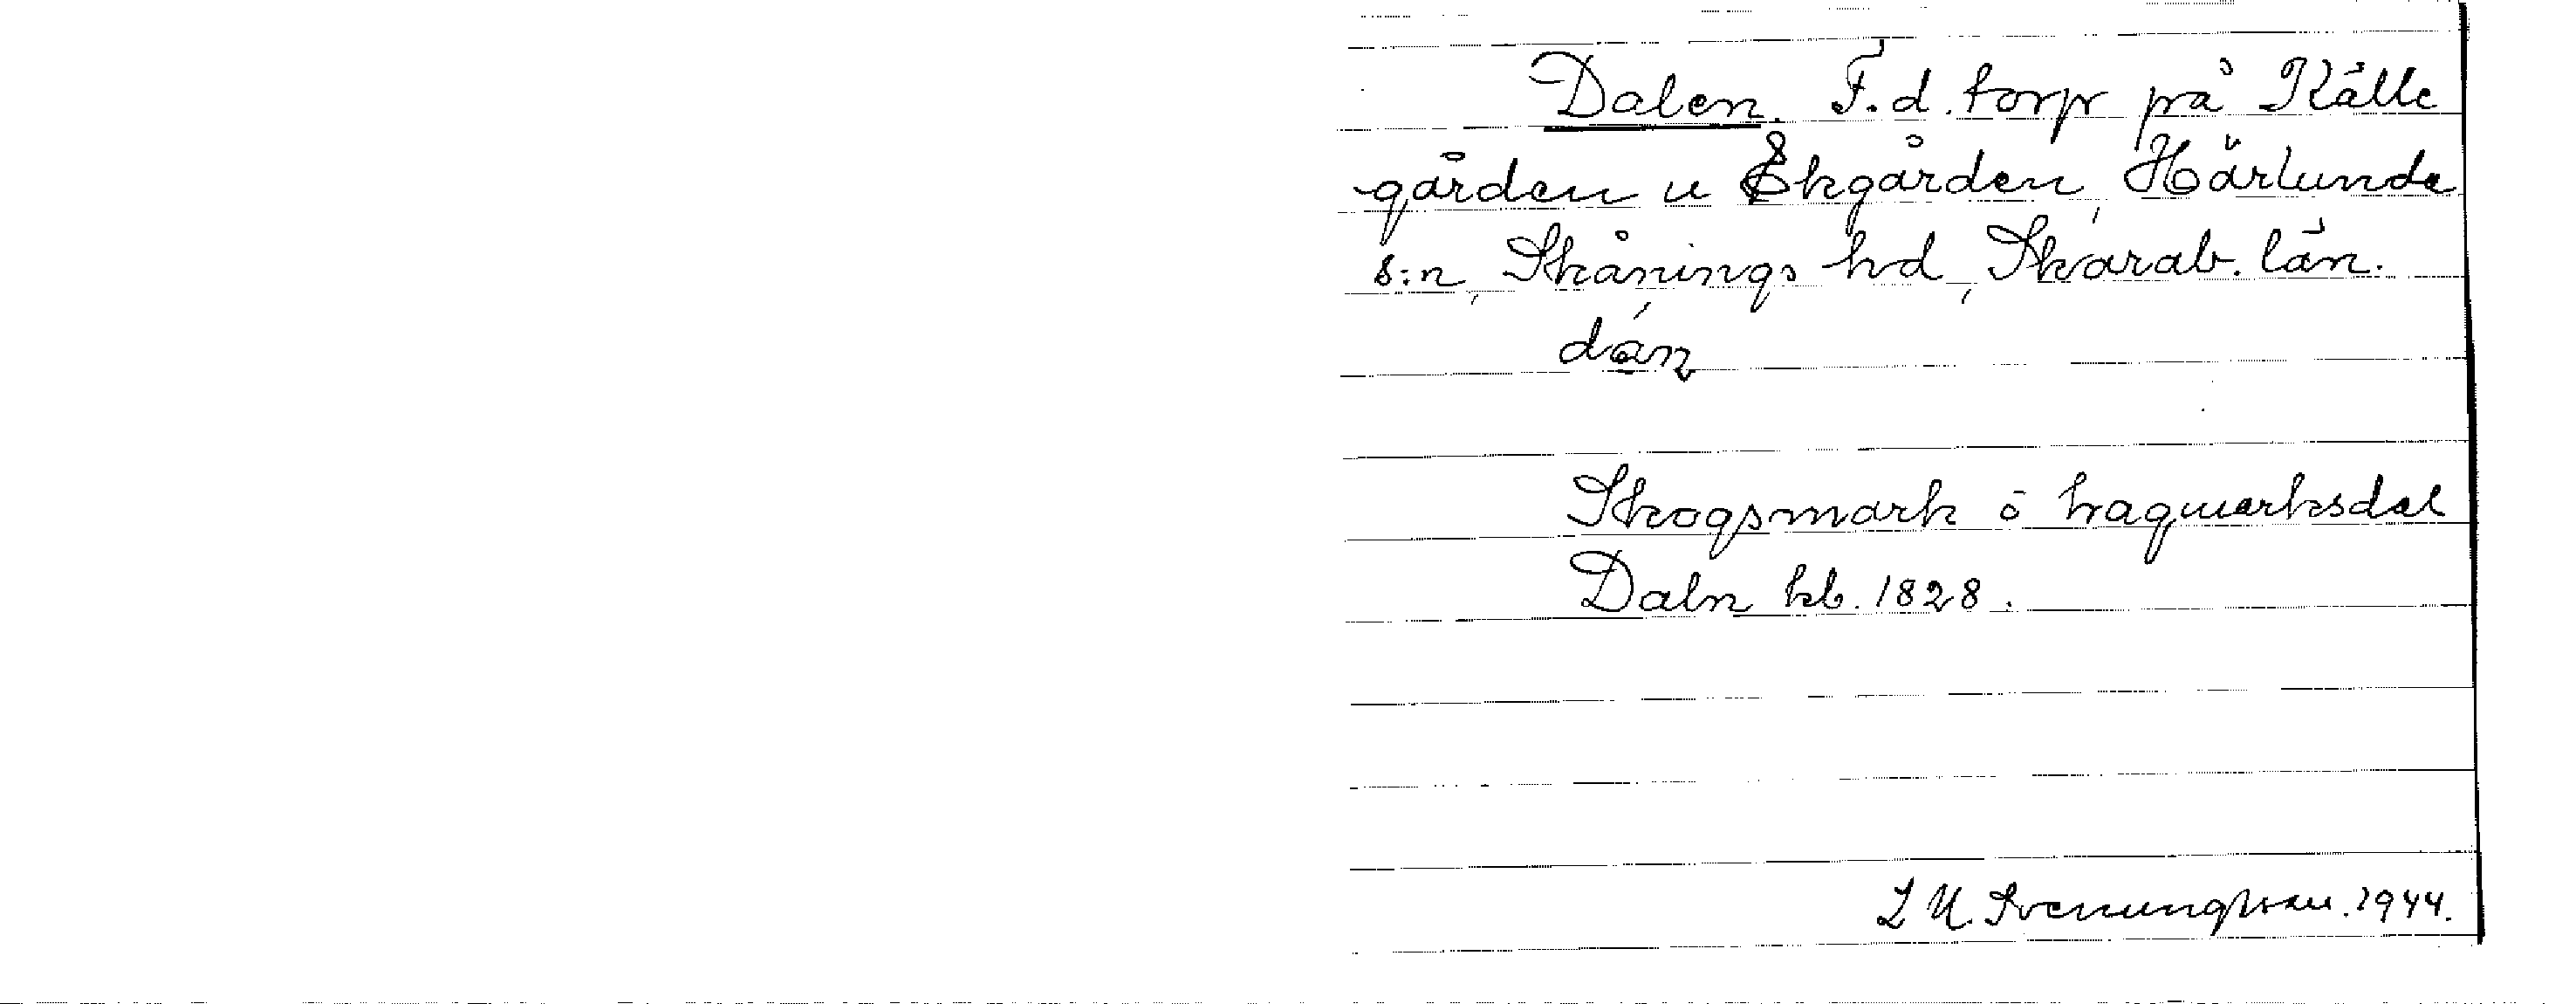 Dalen. F.d. torp på Källe
gården u Ekgården, Härlunda
s:n, Skånings hd, Skarab. län.
dán
Skogsmark o hagmarksdal
Daln kb. 1828.
L M. Svenungsson. 1944.